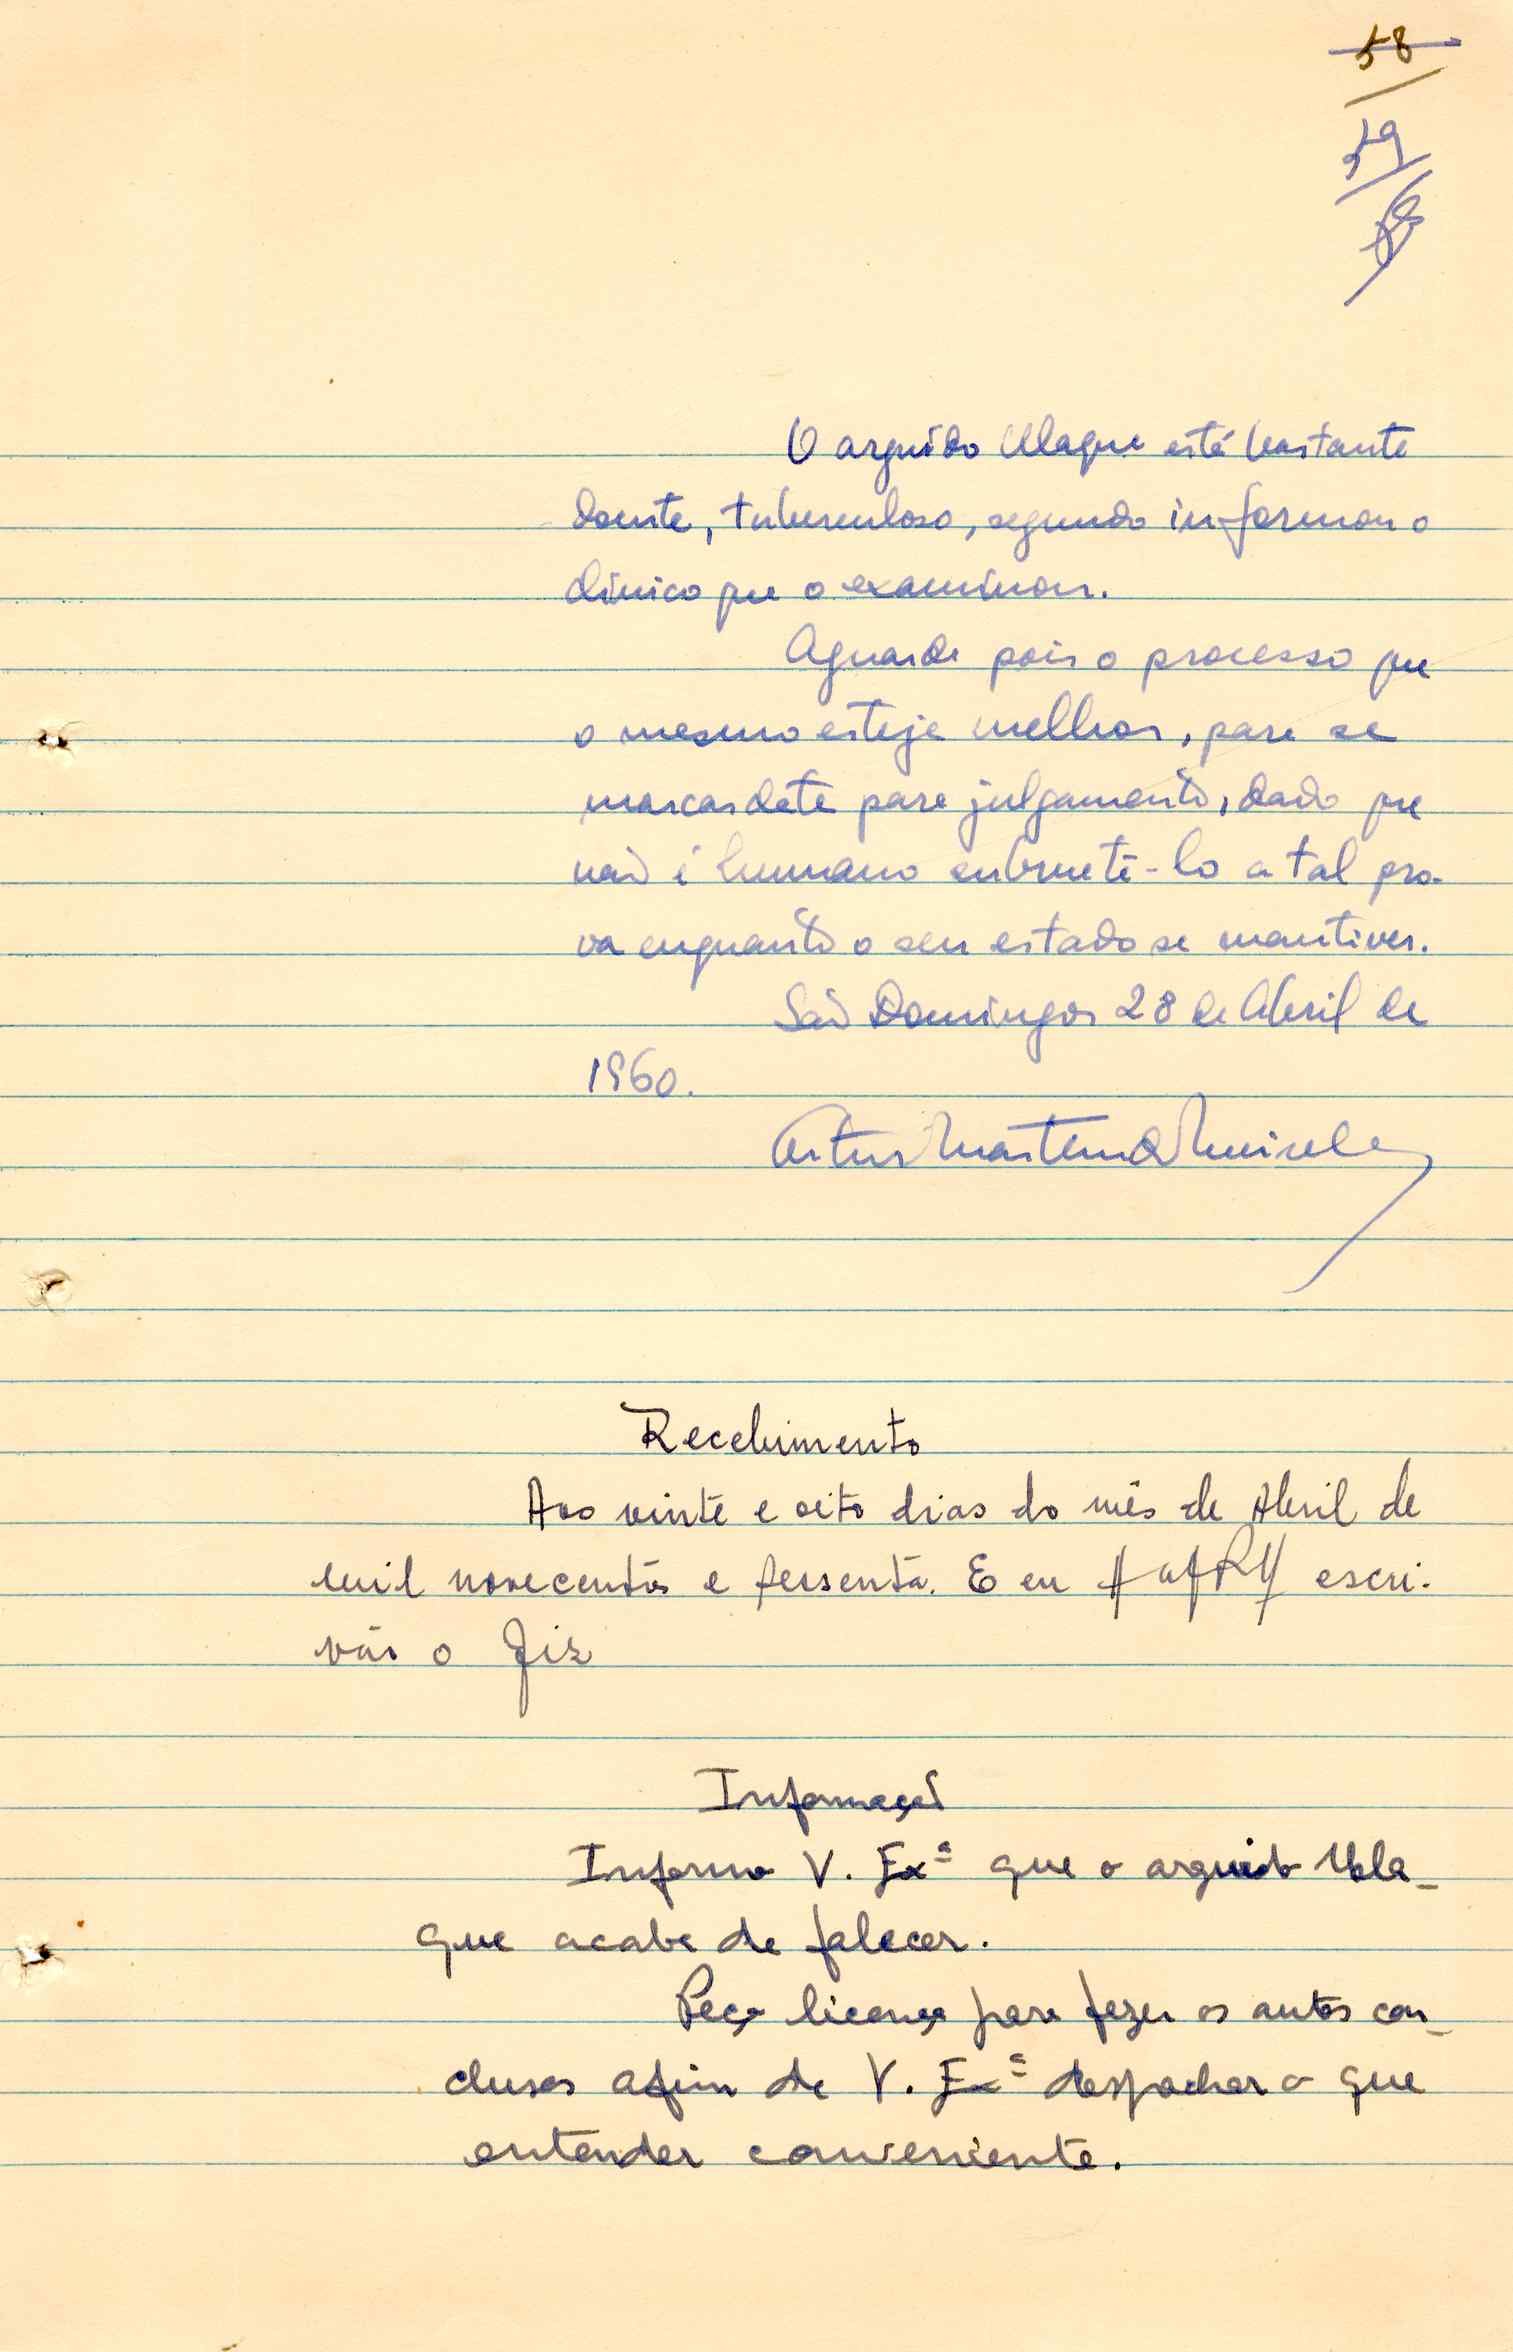 58
59
O arguido Ulaque está bastante
doente, tuberculoso, segundo informou o
clinico que o examinou.
Aguarde pois o processo que
o mesmo esteja melhor, para se
marcar data para julgamento, dado que
não é humano submetê-lo a tal pro-
va enquanto o seu estado se mantiver.
São Domingos 28 de Abril de
1960.
Artur Martins de Meireles
Recebimento
Aos vinte e oito dias do mês de Abril de
mil novecentos e sessenta. E eu escri-
vão o fiz
Informação
Informo V. Exª que o arguido Ula-
que acaba de falecer.
Peço licença para fazer os autos con-
clusos afim de V. Exª despachar o que
entender conveniente.